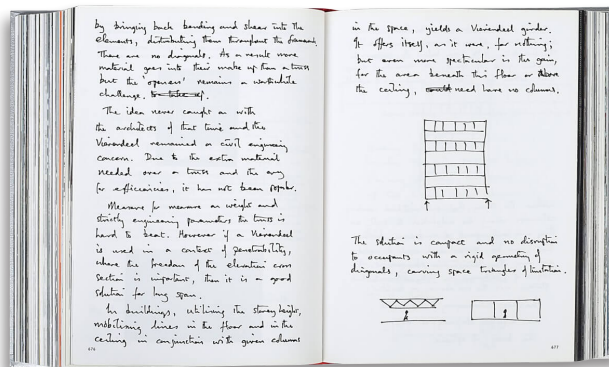 by bringing back bending and shear into the
elements, distributing them throughout the
There are no diagonals. As a result more
material goes into their make up than a truss
but the 'openness' remains a worthwhile
challenge.
The idea never caught on with
the architects of that time and the
Vierendeel remained a civil engineering
concern. Due to the extra material
needed over a truss and the
for efficiencies, it has not been popular.
Measure for measure on weight and
strictly engineering parameters the truss is
hard to beat. However if a Vierendeel
is used in a context of penetrability,
where the freedom of the elevation cross
section is important, then it is a good
solution for long span.
In buildings, utilising the storey height,
mobilising lines in the floor and in the
ceiling in conjunction with given columns
676
in the space, yields a Vierendeel girder.
It offers itself, as it were, for nothing;
but even more spectacular is the gain,
for the area beneath this floor or above
the ceiling, need have no columns.
The solution is compact and no disruption
to occupants with a rigid geometry of
diagonals, carving space triangles of limitation.
677